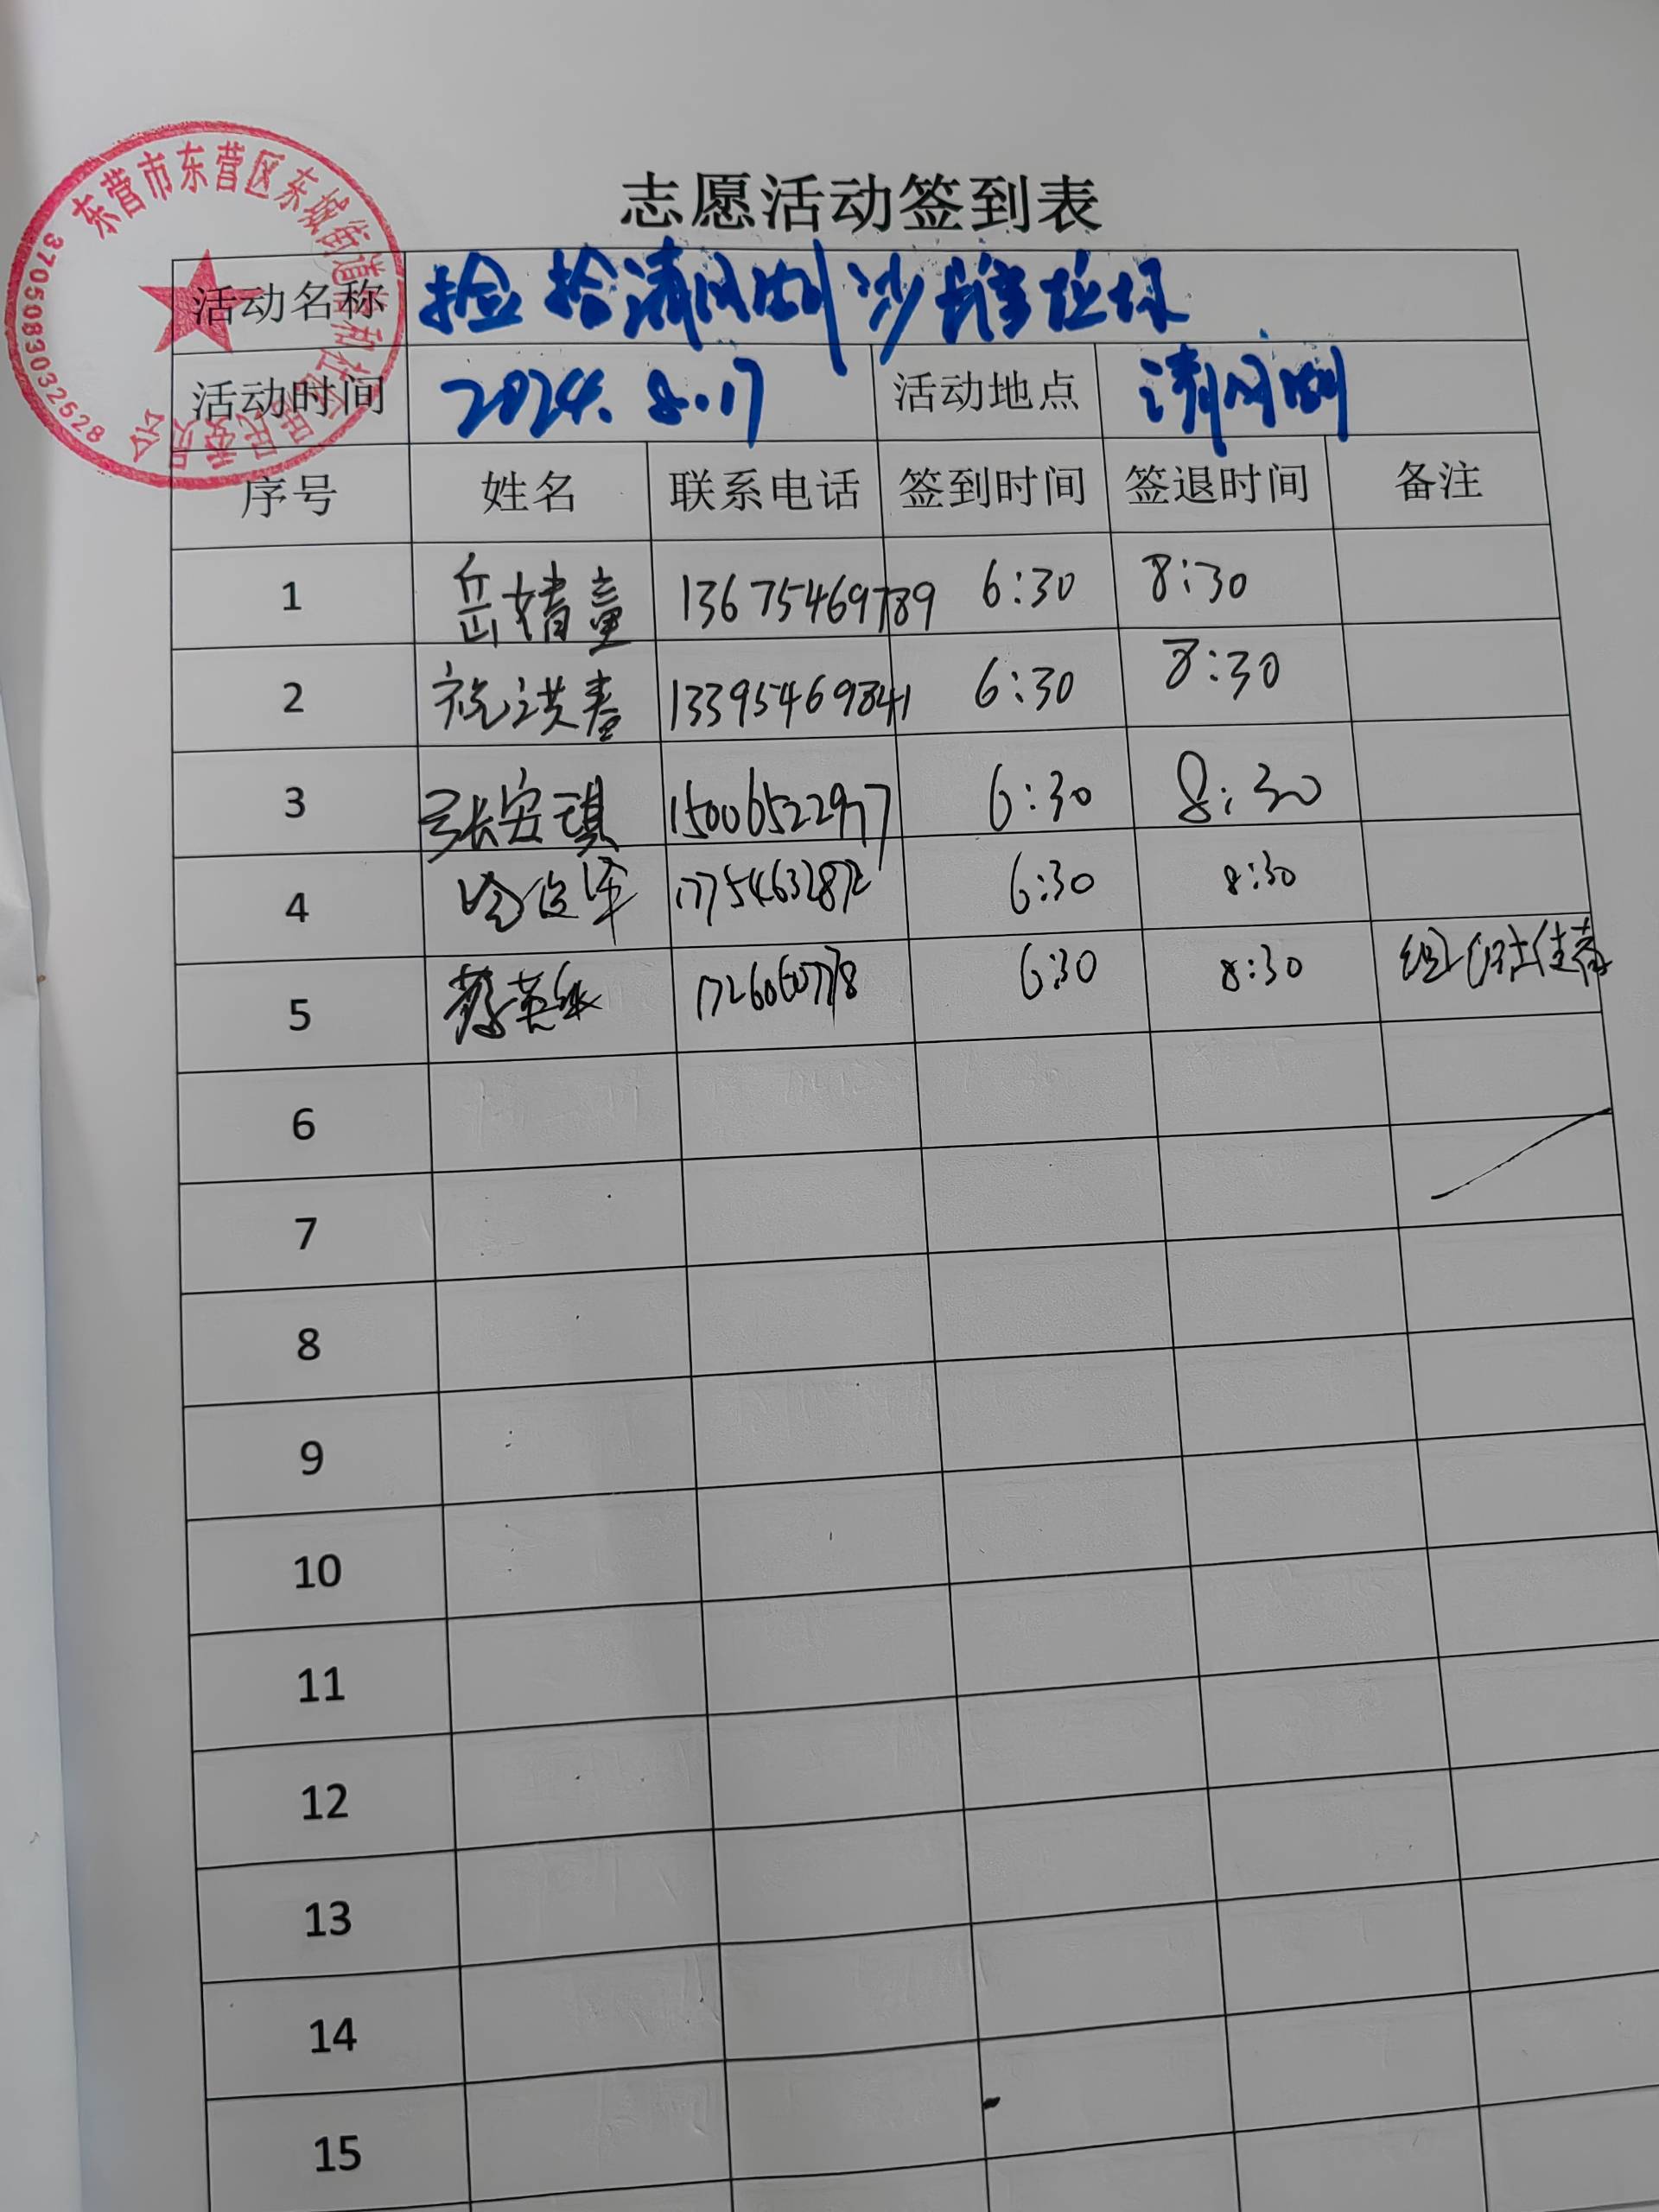 志愿活动签到表
东营市东营区东城街道
居民委员会
3705083032528
活动名称 捡拾清风湖沙滩垃圾
活动时间 2024.8.17 活动地点 清风湖
序号 姓名 联系电话 签到时间 签退时间 备注
1 岳婧童 13675469789 6:30 8:30
2 祝洪春 13395469841 6:30 8:30
3 张安琪 15006522977 6:30 8:30
4 17754632872 6:30 8:30
5 蔡英 6:30 8:30
6
7
8
9
10
11
12
13
14
15